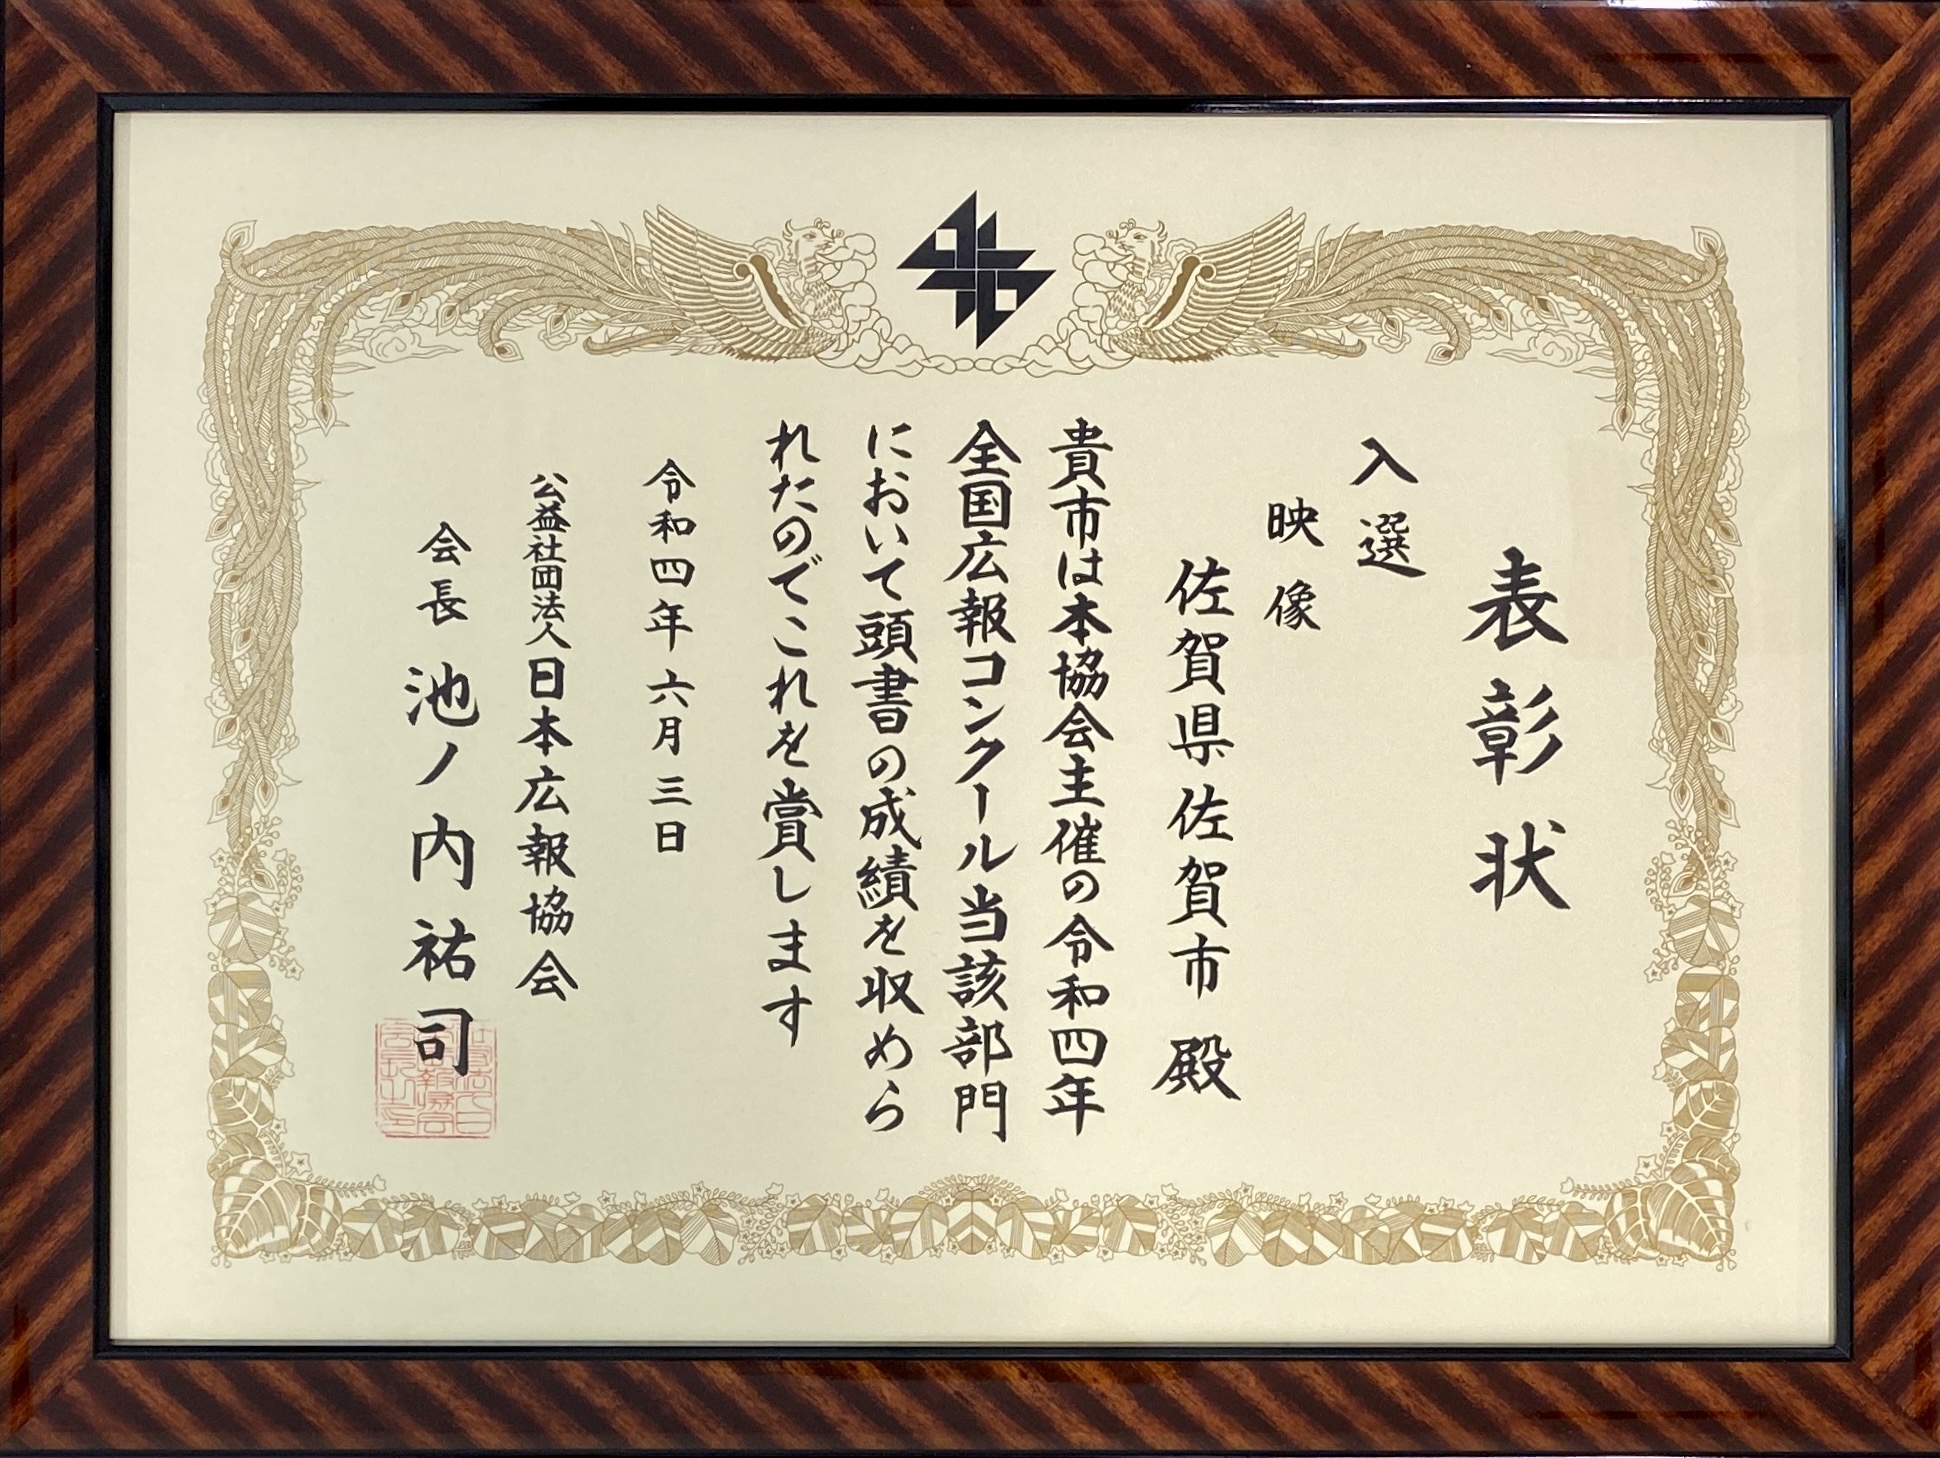 表彰状
入選
映像
佐賀県佐賀市 殿
貴市は本協会主催の令和四年
全国広報コンクール当該部門
において頭書の成績を収めら
れたのでこれを賞します
令和四年六月三日
公益社団法人日本広報協会
会長 池ノ内祐司